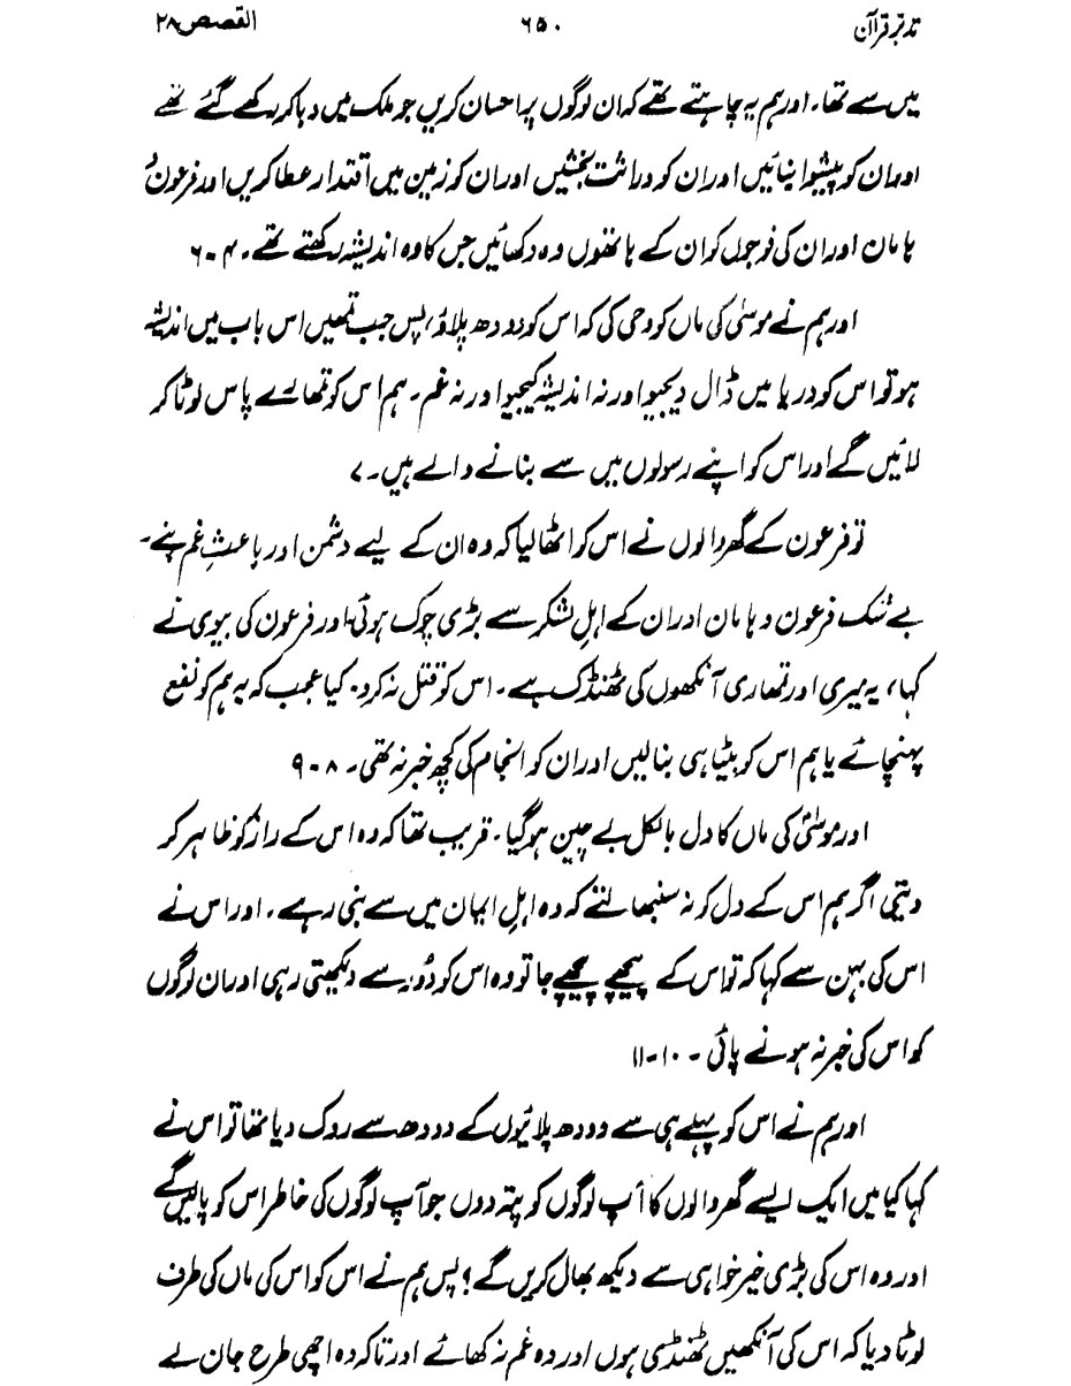 تدبرِ قرآن ۶۵۰ القصص ۲۸
میں سے تھا۔ اور ہم یہ چاہتے تھے کہ ان لوگوں پر احسان کریں جو ملک میں دبا کر رکھے گئے تھے
اور ان کو پیشوا بنائیں اور ان کو وراثت بخشیں اور ان کو زمین میں اقتدار عطا کریں اور فرعون و
ہامان اور ان کی فوجوں کو ان کے ہاتھوں وہ دکھائیں جس کا وہ اندیشہ رکھتے تھے۔ ۴-۶
اور ہم نے موسیٰ کی ماں کو وحی کی کہ اس کو دودھ پلاؤ، پس جب تمھیں اس باب میں اندیشہ
ہو تو اس کو دریا میں ڈال دیجیو اور نہ اندیشہ کیجیو اور نہ غم۔ ہم اس کو تمھارے پاس لوٹا کر
لائیں گے اور اس کو اپنے رسولوں میں سے بنانے والے ہیں۔ ۷
تو فرعون کے گھر والوں نے اس کو اٹھا لیا کہ وہ ان کے لیے دشمن اور باعثِ غم بنے۔
بے شک فرعون و ہامان اور ان کے اہلِ لشکر سے بڑی چوک ہوئی۔ اور فرعون کی بیوی نے
کہا، یہ میری اور تمھاری آنکھوں کی ٹھنڈک ہے۔ اس کو قتل نہ کرو۔ کیا عجب کہ یہ ہم کو نفع
پہنچائے یا ہم اس کو بیٹا ہی بنا لیں اور ان کو انجام کی کچھ خبر نہ تھی۔ ۸-۹
اور موسیٰؑ کی ماں کا دل بالکل بے چین ہو گیا۔ قریب تھا کہ وہ اس کے راز کو ظاہر کر
دیتی اگر ہم اس کے دل کو نہ سنبھالتے کہ وہ اہلِ ایمان میں سے بنی رہے۔ اور اس نے
اس کی بہن سے کہا کہ تو اس کے پیچھے پیچھے جا تو وہ اس کو دُور سے دیکھتی رہی اور ان لوگوں
کو اس کی خبر نہ ہونے پائی۔ ۱۰-۱۱
اور ہم نے اس کو پہلے ہی سے دودھ پلائیوں کے دودھ سے روک دیا تھا تو اس نے
کہا کیا میں ایک ایسے گھر والوں کا آپ لوگوں کو پتہ دوں جو آپ لوگوں کی خاطر اس کو پالیں گے
اور وہ اس کی بڑی خیر خواہی سے دیکھ بھال کریں گے؟ پس ہم نے اس کو اس کی ماں کی طرف
لوٹا دیا کہ اس کی آنکھیں ٹھنڈی ہوں اور وہ غم نہ کھائے اور تاکہ وہ اچھی طرح جان لے